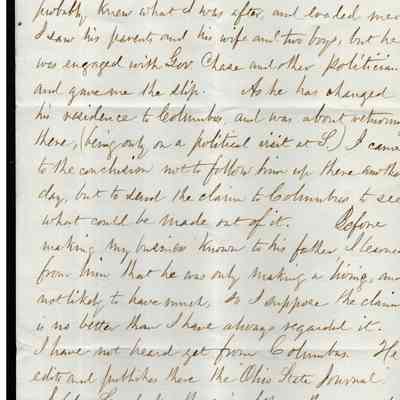 probably knew what I was after, and evaded me.
I saw his parents and his wife and two boys, but he
was engaged with Gov. Chase and other politician
and gave me the slip. As he has changed
his residence to Columbus, and was about returning
there, (being only on a political visit at S.) I came
to the conclusion not to follow him up there another
day, but to send the claim to Columbus, to see
what could be made out of it. Before
making my business known to his father I learned
from him that he was only making a living, and
not likely to have much. So I suppose the claim
is no better than I have always regarded it.
I have not heard yet from Columbus. He
edits and publishes there the Ohio State Journal.